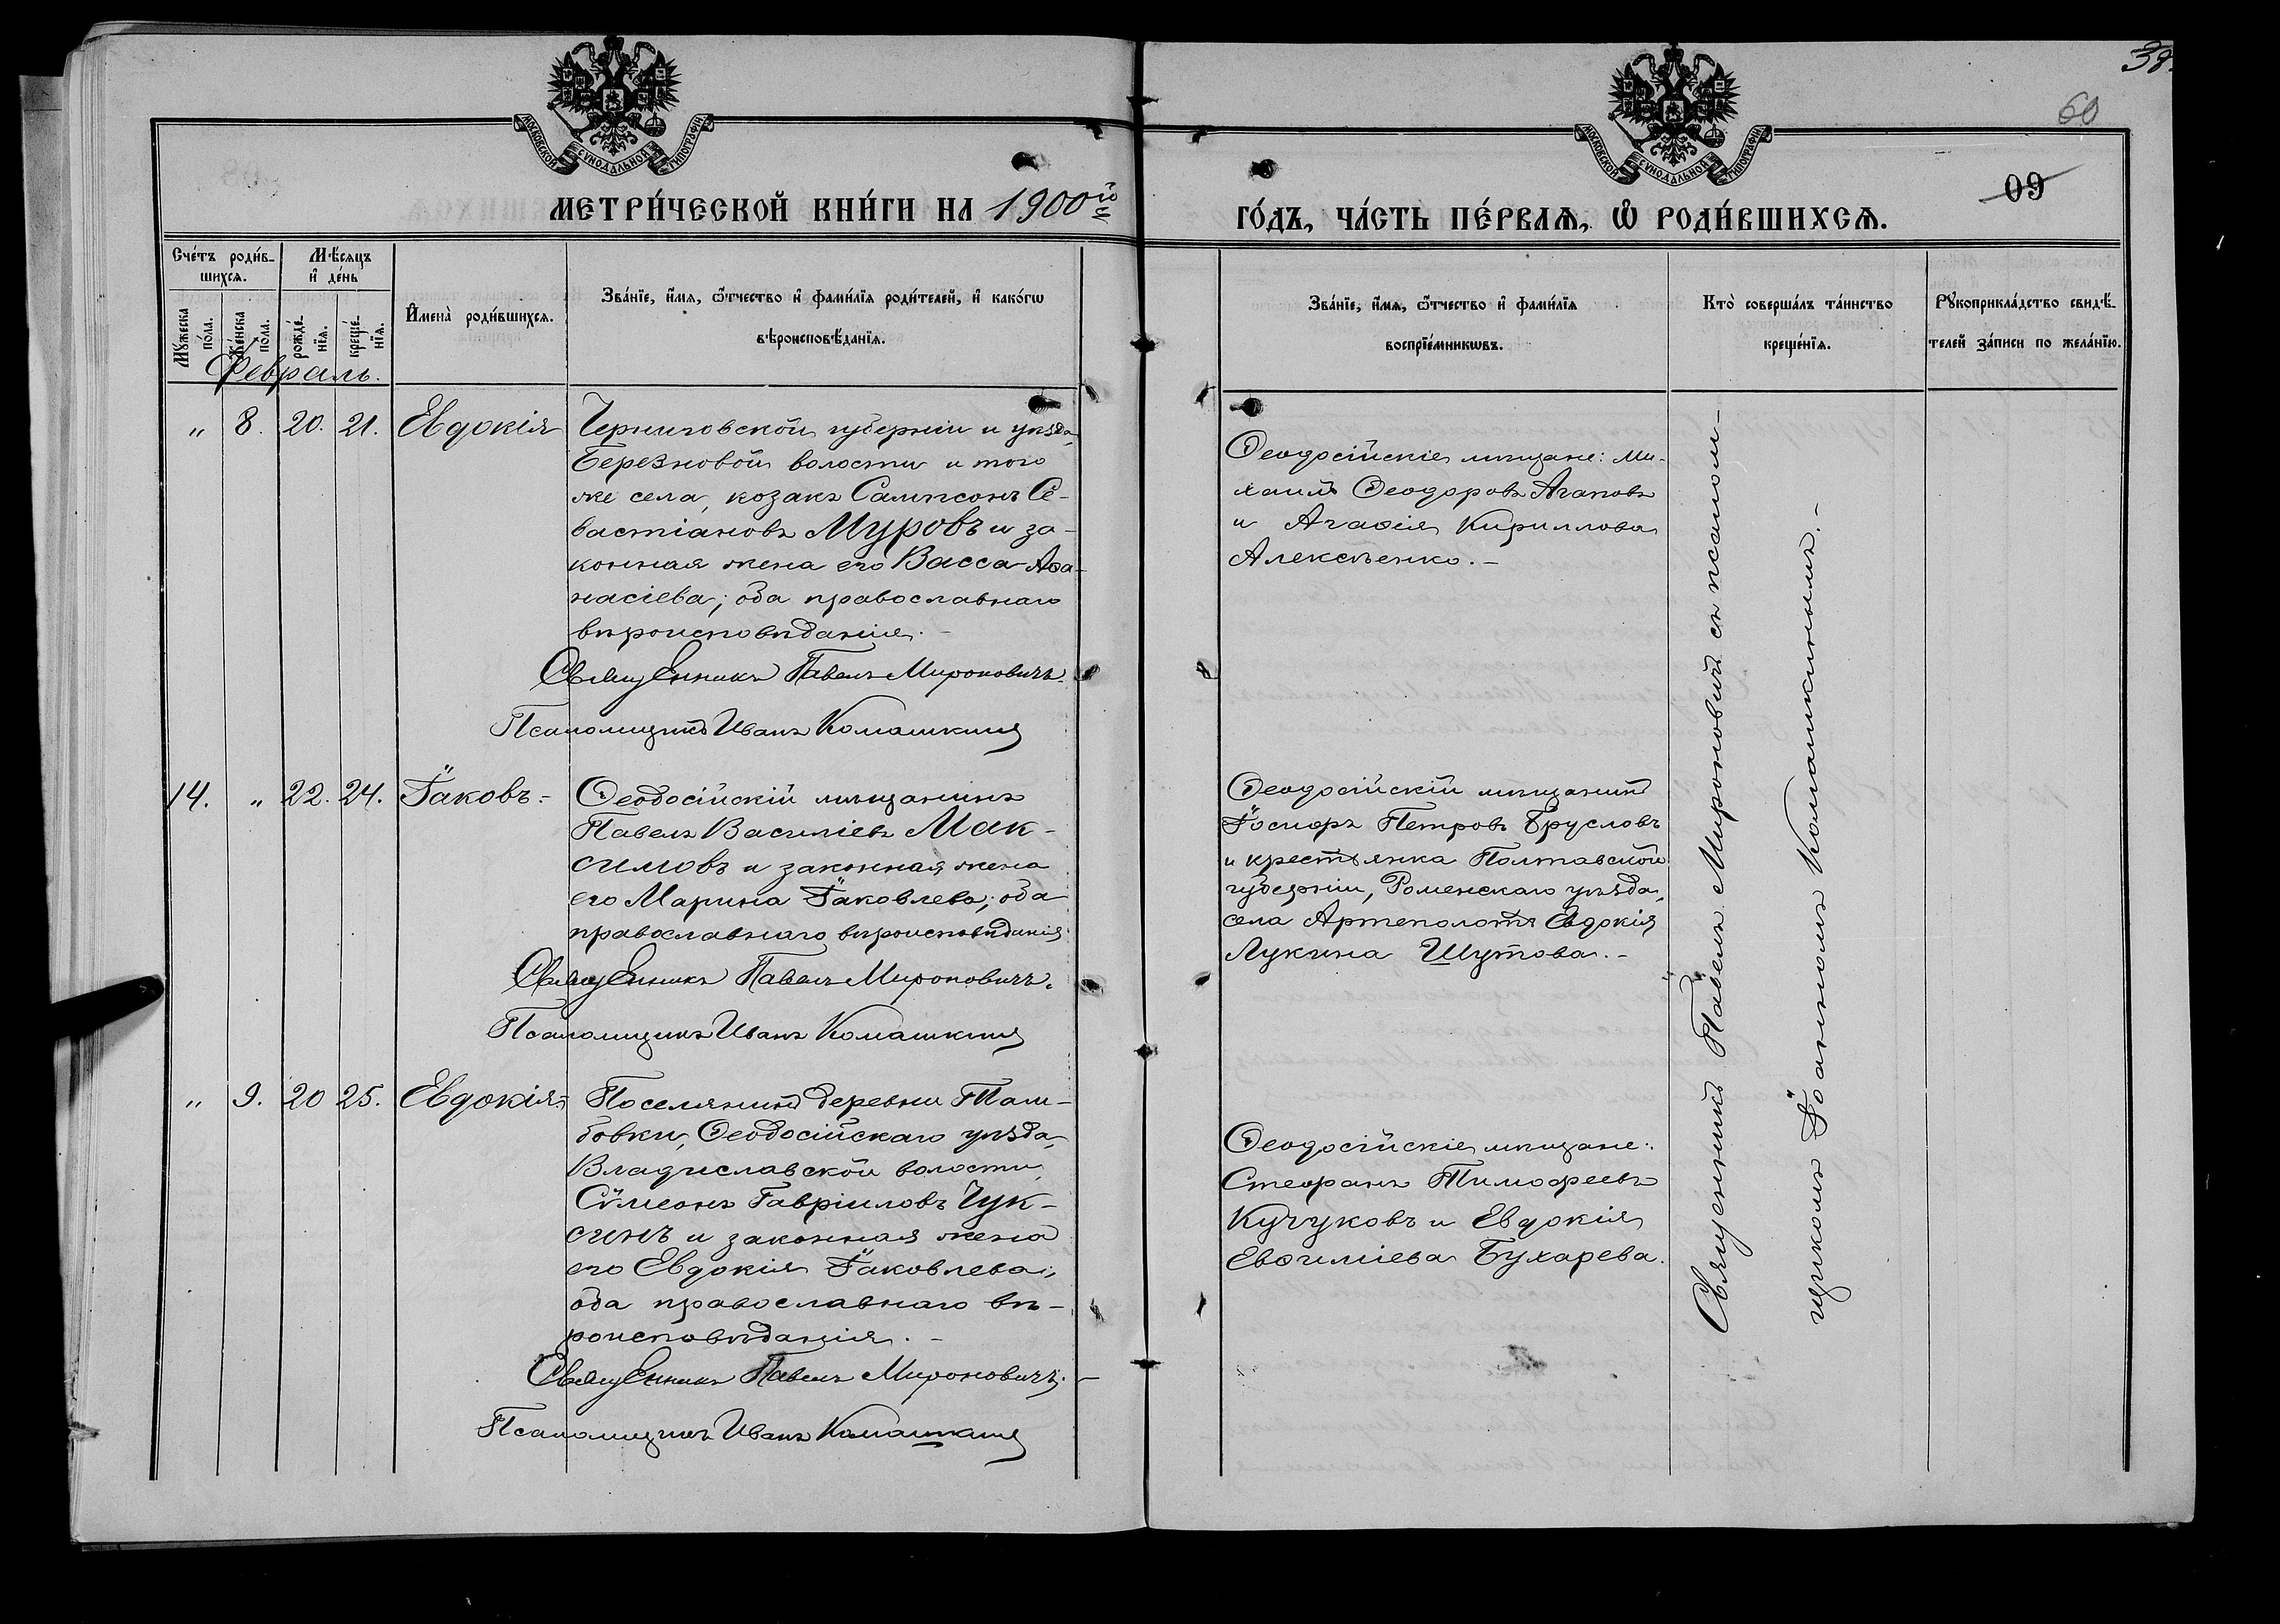 38.
60
09
МОСКОВСКОЙ СѴНОДАЛЬНОЙ ТИПОГРАФІИ
МОСКОВСКОЙ СѴНОДАЛЬНОЙ ТИПОГРАФІИ
МЕТРИ́ЧЕСКОЙ КНИ́ГИ НА 1900й
ГО́ДЪ, ЧА́СТЬ ПЕ́РВАѦ, Ѡ҆ РОДИ́ВШИХСѦ.
Сче́тъ роди́в-
шихсѧ.
Мѣ́сѧцъ
и҆ де́нь
Мꙋ́жеска
по́ла.
Же́нска
пола.
рожде́-
нїѧ.
креще́-
нїѧ.
И҆мена̀ роди́вшихсѧ.
Зва́нїе, и҆́мѧ, ѻ҆́тчество и҆ фами́лїѧ роди́телей, и҆ како́гѡ
вѣроисповѣ́данїѧ.
Зва́нїе, и҆́мѧ, ѻ҆́тчество и҆ фами́лїѧ
воспрїе́мникѡвъ.
Кто̀ соверша́лъ та́инство
креще́нїѧ.
Рꙋкоприкла́дство свидѣ́-
телей за́писи по жела́нїю.
Февраль.
„ 8. 20. 21. Евдокія
Черниговской губерніи и уѣзда,
Березновой волости и того
же села, козакъ Сампсонъ Се-
вастіановъ Муровъ и за-
конная жена его Васса Аѳа-
насіева; оба православнаго
вѣроисповѣданія. -
Священникъ Павелъ Мироновичъ.
Псаломщикъ Иванъ Комашкинъ
Ѳеодосійскіе мѣщане: Ми-
хаилъ Ѳеодоровъ Агаповъ
и Агаѳія Кириллова
Алексѣенко. -
14. „ 22. 24. Іаковъ. -
Ѳеодосійскій мѣщанинъ
Павелъ Василіевъ Мак-
симовъ и законная жена
его Марина Іаковлева; оба
православнаго вѣроисповѣданія.
Священникъ Павелъ Мироновичъ.
Псаломщикъ Иванъ Комашкинъ
Ѳеодосійскій мѣщанинъ
Іосифъ Петровъ Брусловъ
и крестьянка Полтавской
губерніи, Роменскаго уѣзда,
села Артеполотъ Евдокія
Лукина Шутова. -
„ 9. 20 25. Евдокія. -
Поселянинъ деревни Там-
бовки, Ѳеодосійскаго уѣзда,
Владиславской волости,
Сѵмеонъ Гавріиловъ Чук-
синъ и законная жена
его Евдокія Іаковлева;
оба православнаго вѣ-
роисповѣданія. -
Священникъ Павелъ Мироновичъ. -
Псаломщикъ Иванъ Комашкинъ
Ѳеодосійскіе мѣщане:
Стефанъ Тимофеевъ
Кучуковъ и Евдокія
Евѳиміева Бухарева.
Священникъ Павелъ Мироновичъ съ псалом-
щикомъ Іоанномъ Комашкинымъ. -